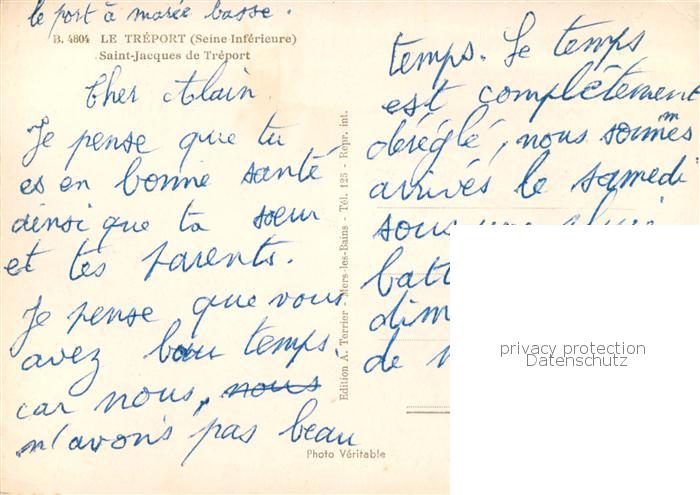 le port à marée basse.
B. 4804 LE TRÉPORT (Seine-Inférieure)
Saint-Jacques de Tréport
Cher Alain
Je pense que tu
es en bonne santé
ainsi que ta sœur
et tes parents.
Je pense que vous
avez beau temps.
car nous, nous
n'avons pas beau
temps. Le temps
est complètement
déréglé, nous sommes
arrivés le samedi
sous une pluie
batt
dim
de
Edition A. Terrier - Mers-les-Bains - Tél. 125 - Repr. int.
Photo Véritable
privacy protection
Datenschutz